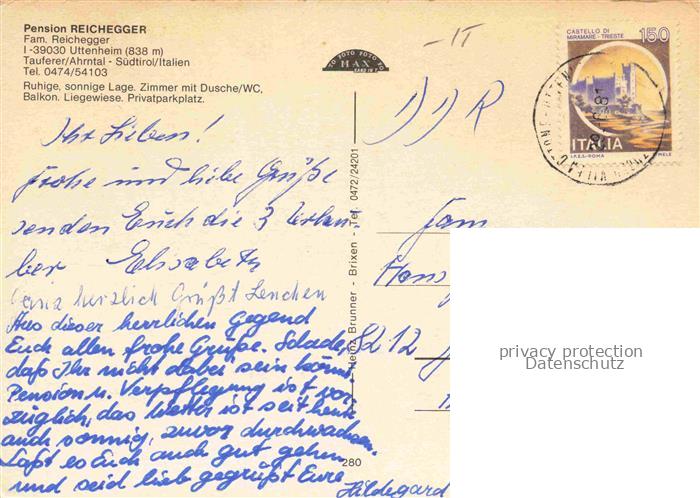 Pension REICHEGGER
Fam. Reichegger
I -39030 Uttenheim (838 m)
Tauferer/Ahrntal - Südtirol/Italien
Tel. 0474/54103
Ruhige, sonnige Lage. Zimmer mit Dusche/WC,
Balkon. Liegewiese. Privatparkplatz.
FOTO MAX
CASTELLO DI
MIRAMARE - TRIESTE
150
ITALIA
I.P.Z.S.-ROMA
MELE
DDR
Ihr Lieben!
Frohe und liebe Grüße
senden Euch die 3 Urlau-
ber Elisabeth
Ganz herzlich Grüßt Lenchen
Aus dieser herrlichen Gegend
Euch allen frohe Grüße. Schade,
daß Ihr nicht dabei sein könnt
Pension u. Verpflegung ist vor
züglich, das Wetter ist seit heute
auch sonnig, zuvor durchwachsen.
Laßt es Euch auch gut gehen
und seid lieb gegrüßt Eure
Hildegard
280
Heinz Brunner - Brixen - Tel. 0472/24201
Fam
Hans
8212
privacy protection
Datenschutz